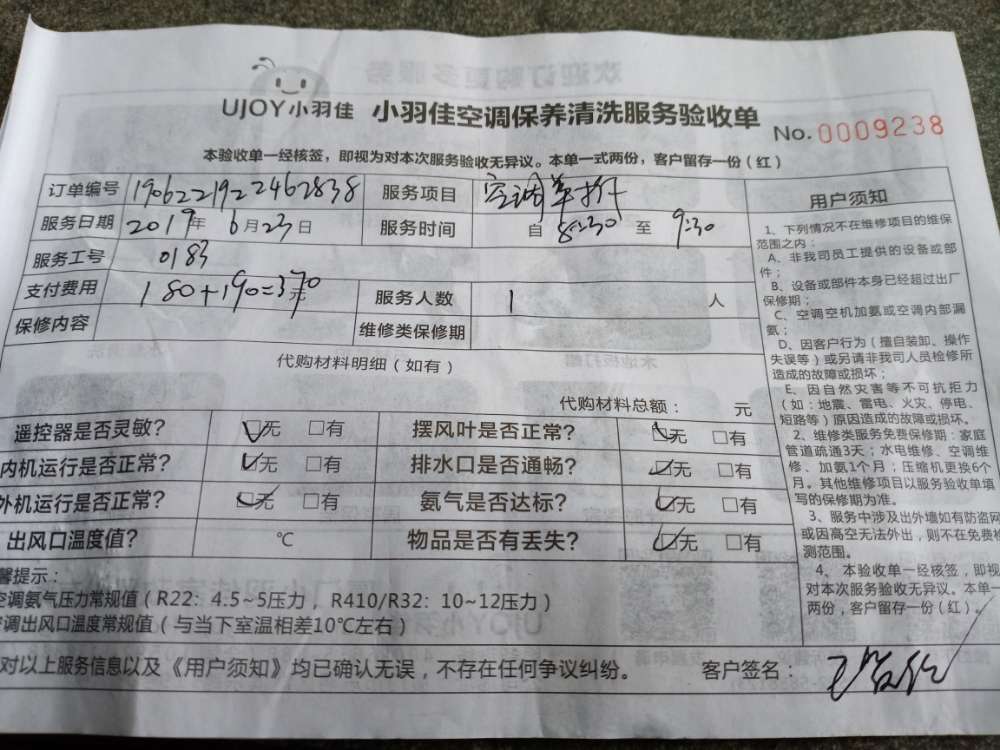 UJOY小羽佳 小羽佳空调保养清洗服务验收单 No.0009238
本验收单一经核签，即视为对本次服务验收无异议。本单一式两份，客户留存一份（红）
订单编号 190622192462838 服务项目 空调单拆
服务日期 2019年 6月23日 服务时间 自 8:30 至 9:30
服务工号 0183
支付费用 180+190=370元 服务人数 1 人
保修内容 维修类保修期
代购材料明细（如有）
代购材料总额： 元
遥控器是否灵敏？ ☑无 □有 摆风叶是否正常？ ☑无 □有
内机运行是否正常？ ☑无 □有 排水口是否通畅？ ☑无 □有
外机运行是否正常？ ☑无 □有 氨气是否达标？ ☑无 □有
出风口温度值？ ℃ 物品是否有丢失？ ☑无 □有
馨提示：
空调氨气压力常规值（R22：4.5~5压力，R410/R32：10~12压力）
调出风口温度常规值（与当下室温相差10℃左右）
对以上服务信息以及《用户须知》均已确认无误，不存在任何争议纠纷。 客户签名：
用户须知
1、下列情况不在维修项目的维保
范围之内：
A、非我司员工提供的设备或部
件；
B、设备或部件本身已经超过出厂
保修期；
C、空调空机加氨或空调内部漏
氨；
D、因客户行为（擅自装卸、操作
失误等）或另请非我司人员检修所
造成的故障或损坏；
E、因自然灾害等不可抗拒力
（如：地震、雷电、火灾、停电、
短路等）原因造成的故障或损坏。
2、维修类服务免费保修期：家庭
管道疏通3天；水电维修、空调维
修、加氨1个月；压缩机更换6个
月。其他维修项目以服务验收单填
写的保修期为准。
3、服务中涉及出外墙如有防盗网
或因高空无法外出，则不在免费检
测范围。
4、本验收单一经核签，即视
对本次服务验收无异议。本单一
两份，客户留存一份（红）。